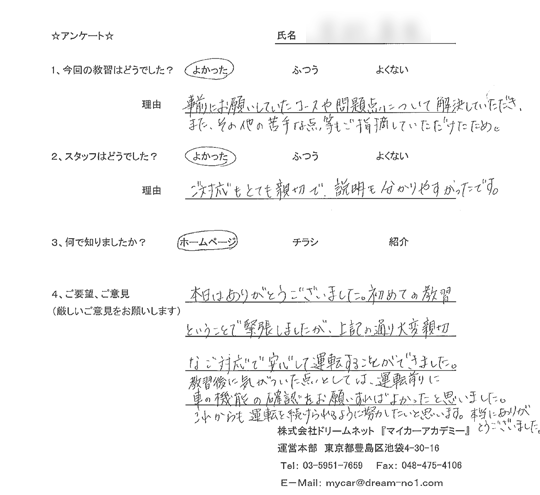 ☆アンケート☆ 氏名
1、今回の教習はどうでした? よかった ふつう よくない
理由 事前にお願いしていたコースや問題点について解決していただき、
また、その他の苦手な点等もご指摘していただけたため。
2、スタッフはどうでした? よかった ふつう よくない
理由 ご対応もとても親切で、説明も分かりやすかったです。
3、何で知りましたか? ホームページ チラシ 紹介
4、ご要望、ご意見 本日はありがとうございました。初めての教習
(厳しいご意見をお願いします)
ということで緊張しましたが、上記の通り大変親切
なご対応で安心して運転することができました。
教習後に気がついた点としては、運転前に
車の機能の確認をお願いすればよかったと思いました。
これからも運転を続けられるように努力したいと思います。本当にありが
とうございました。
株式会社ドリームネット 『マイカーアカデミー』
運営本部 東京都豊島区池袋4-30-16
Tel: 03-5951-7659 Fax: 048-475-4106
E-Mail: mycar@dream-no1.com